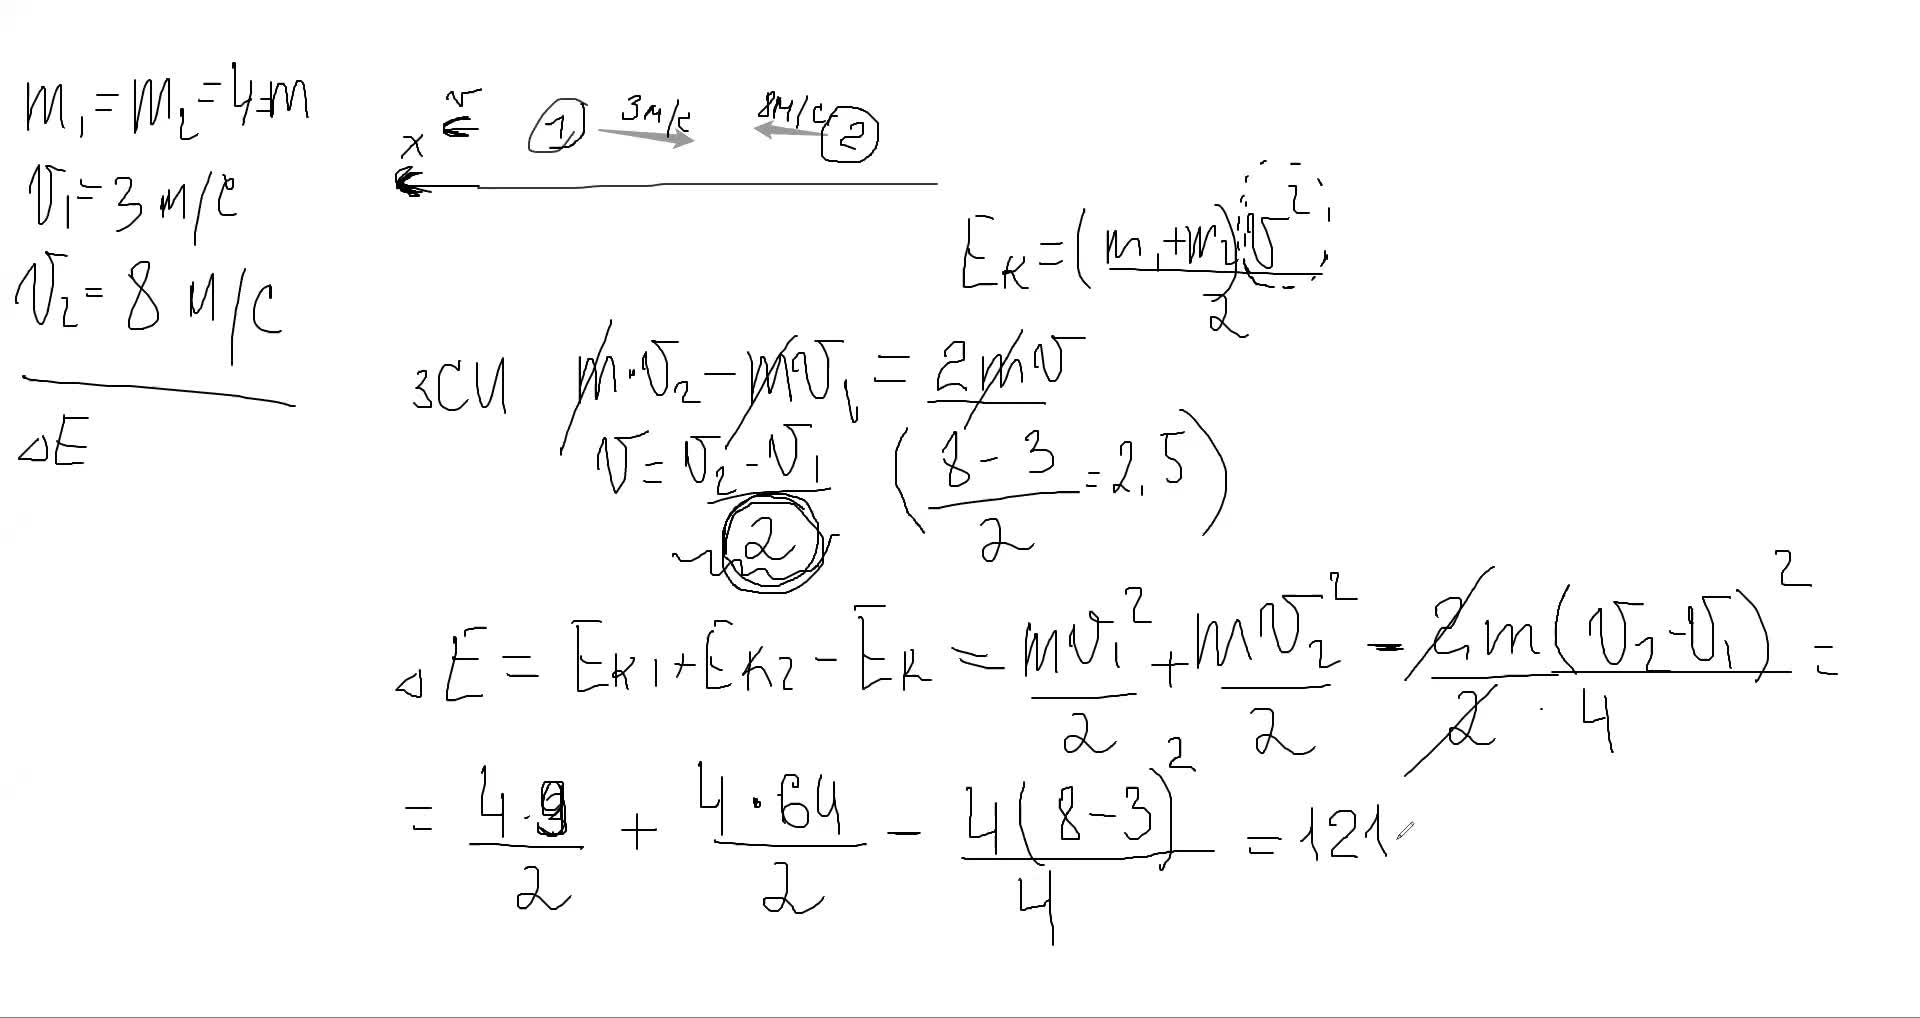 m₁ = m₂ = 4 = m
v₁ = 3 м/с
v₂ = 8 м/с
ΔE
x v 1 3м/с 8м/с 2
Eк = (m₁+m₂)v²/2
ЗСИ m·v₂ − mv₁ = 2mv
v = (v₂ − v₁)/2 ((8 − 3)/2 = 2,5)
ΔE = Eк1 + Eк2 − Eк = mv₁²/2 + mv₂²/2 − 2m(v₂−v₁)²/(2·4) =
= 4·9/2 + 4·64/2 − 4(8−3)²/4 = 121